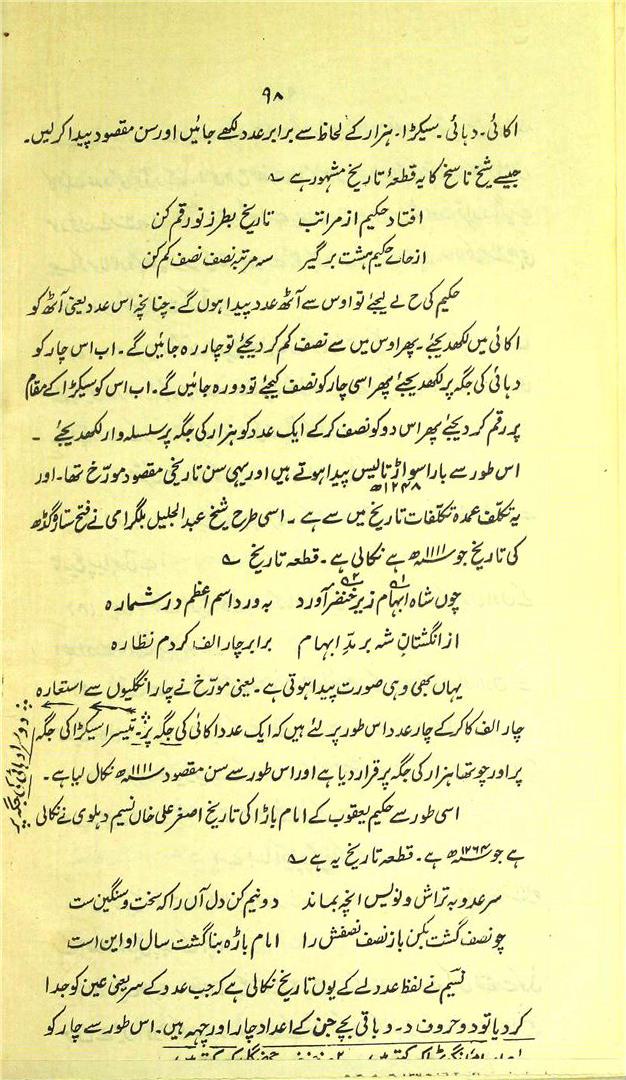 ۹۸
اکائی۔ دہائی۔ سیکڑا۔ ہزار کے لحاظ سے برابر عدد لکھے جائیں اور سن مقصود پیدا کرلیں۔
جیسے شیخ ناسخ کا یہ قطعۂ تاریخ مشہور ہے ؎
افتاد حکیم از مراتب تاریخ بطرز نو رقم کن
از حاے حکیم ہشت برگیر سہ مرتبہ نصف نصف کم کن
حکیم کی ح لے لیجئے تو اوس سے آٹھ عدد پیدا ہوں گے۔ چنانچہ اس عدد یعنی آٹھ کو
اکائی میں لکھدیجئے۔ پھر اوس میں سے نصف کم کر دیجئے تو چار رہ جائیں گے۔ اب اس چار کو
دہائی کی جگہ پر لکھدیجئے پھر اسی چار کو نصف کیجئے تو دو رہ جائیں گے۔ اب اس کو سیکڑا کے مقام
پر رقم کر دیجئے پھر اس دو کو نصف کر کے ایک عدد کو ہزار کی جگہ پر سلسلہ وار لکھدیجئے ۔
اس طور سے بارا سو اڑتالیس پیدا ہوتے ہیں اور یہی سن تاریخی مقصود مورّخ تھا۔ اور
۱۲۴۸ھ
یہ تکلّف عمدہ تکلّفات تاریخ میں سے ہے ۔ اسی طرح شیخ عبدالجلیل بلگرامی نے فتح ستاؤ گڈھ
کی تاریخ جو ۱۱۱۱ھ ہے نکالی ہے۔ قطعہ تاریخ ؎
چوں شاہ ابہام زیر خنصر آورد بہ ورد اسم اعظم در شمارہ
از انگشتانِ شہ بر مدِّ ابہام برابر چار الف کردم نظارہ
یہاں بھی وہی صورت پیدا ہوتی ہے۔ یعنی مورّخ نے چار انگلیوں سے استعارہ
چار الف کا کر کے چار عدد اس طور پر لئے ہیں کہ ایک عدد اکائی کی جگہ پر۔ تیسرا سیکڑا کی جگہ
دوسرا دہائی کی جگہ پر
پر اور چوتھا ہزار کی جگہ پر قرار دیا ہے اور اس طور سے سن مقصود ۱۱۱۱ھ نکال لیا ہے۔
اسی طور سے حکیم یعقوب کے امام باڑا کی تاریخ اصغر علی خاں نسیم دہلوی نے نکالی
ہے جو ۱۲۶۴ھ ہے۔ قطعہ تاریخ یہ ہے ؎
سر عدو بہ تراش و نویس انچہ بماند دو نیم کن دل آں را کہ سخت و سنگین ست
چو نصف گشت بکن باز نصف نصفش را امام باڑہ بنا گشت سال او این است
نسیم نے لفظ عدد لے کے یوں تاریخ نکالی ہے کہ جب عدد کے سر یعنی عین کو جدا
کر دیا تو دو حروف د۔ د باقی بچے جن کے اعداد چار اور چہہ ہیں۔ اس طور سے چار کو